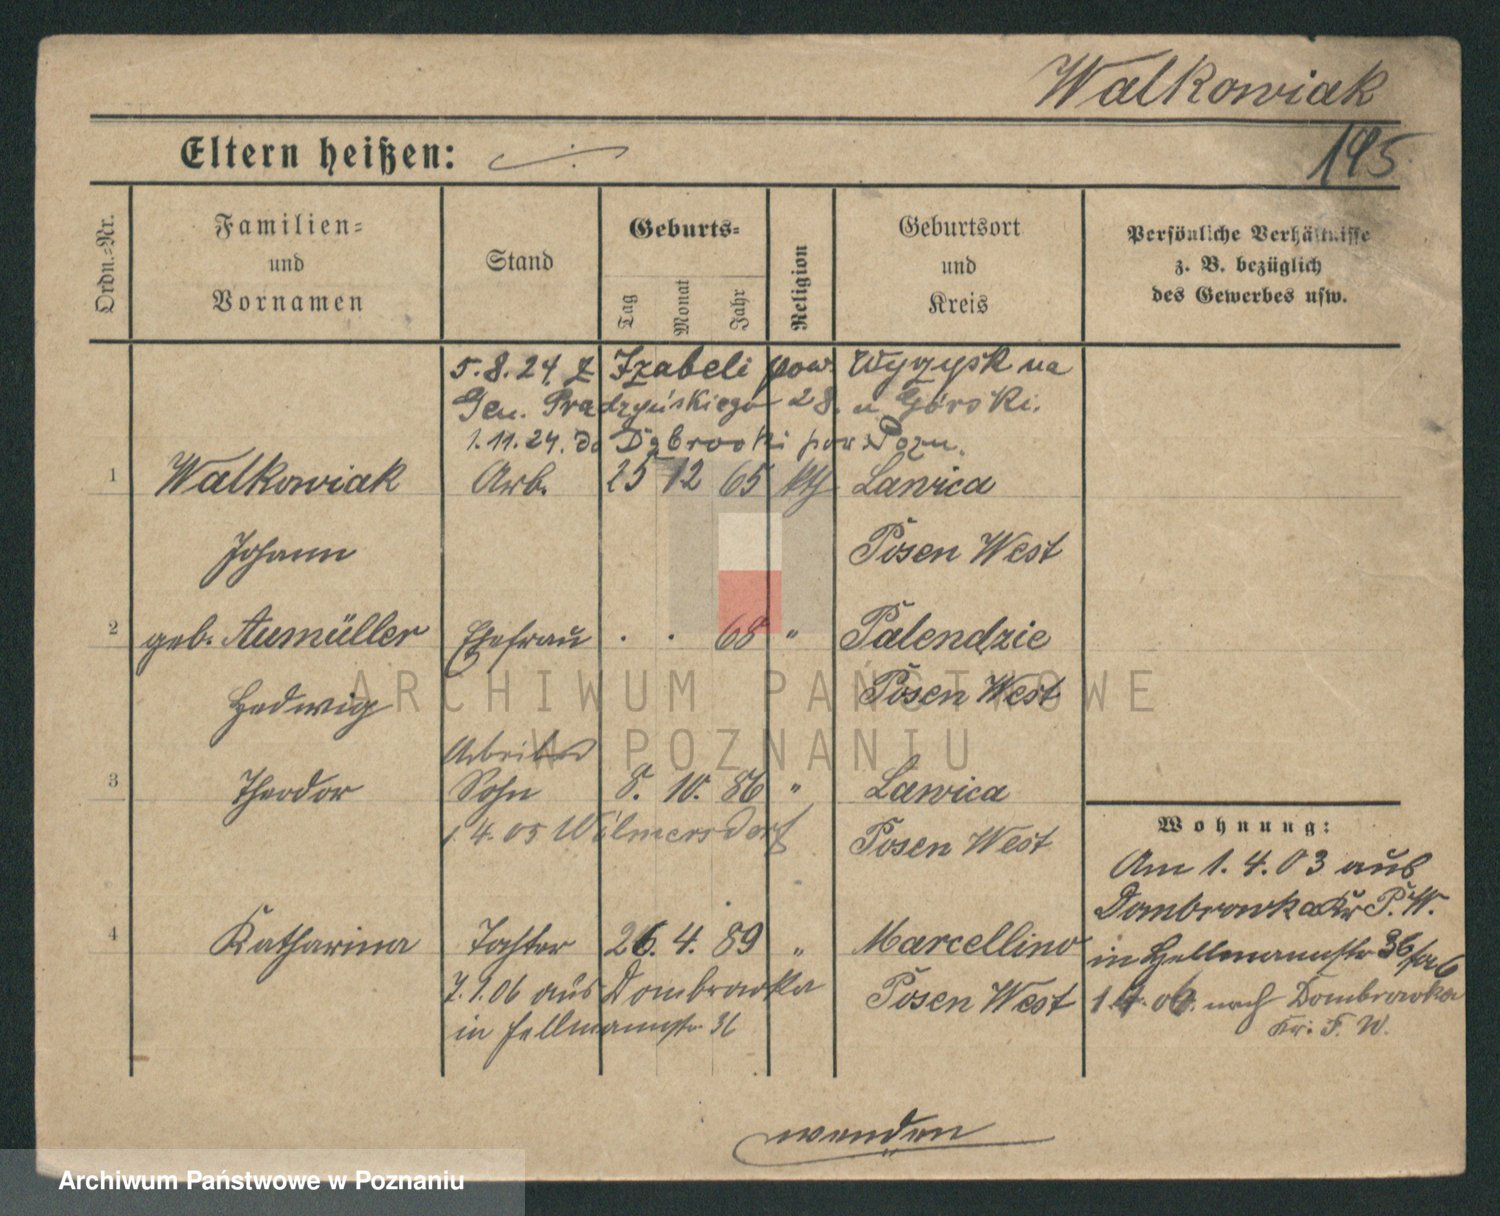 Walkowiak
195
Eltern heißen:
Ordn.=Nr.
Familien=
und
Vornamen
Stand
Geburts=
Tag
Monat
Jahr
Religion
Geburtsort
und
Kreis
Persönliche Verhältnisse
z. B. bezüglich
des Gewerbes usw.
5.8.24 z Izabeli pow. Wyrzysk na
Gen. Prądzyńskiego 28. u Górski.
1.11.24. do Dąbrowki pow. Pozn.
1 Walkowiak Arb. 25 12 65 kth Lawica
Johann Posen West
2 geb. Aumüller Ehefrau . . 68 " Palendzie
Hedwig Posen West
Arbeiter
3 Theodor Sohn 8. 10. 86 " Lawica
1.4.05 Wilmersdorf Posen West
4 Katharina Tochter 26. 4. 89 " Marcellino
7.1.06 aus Dombrowka Posen West
in Hellmannstr 36
Wohnung:
Am 1.4.03 aus
Dombrowka Kr P.W.
in Hellmannstr 36
nach Dombrowka
Kr. P. W.
wenden
ARCHIWUM PAŃSTWOWE
W POZNANIU
Archiwum Państwowe w Poznaniu